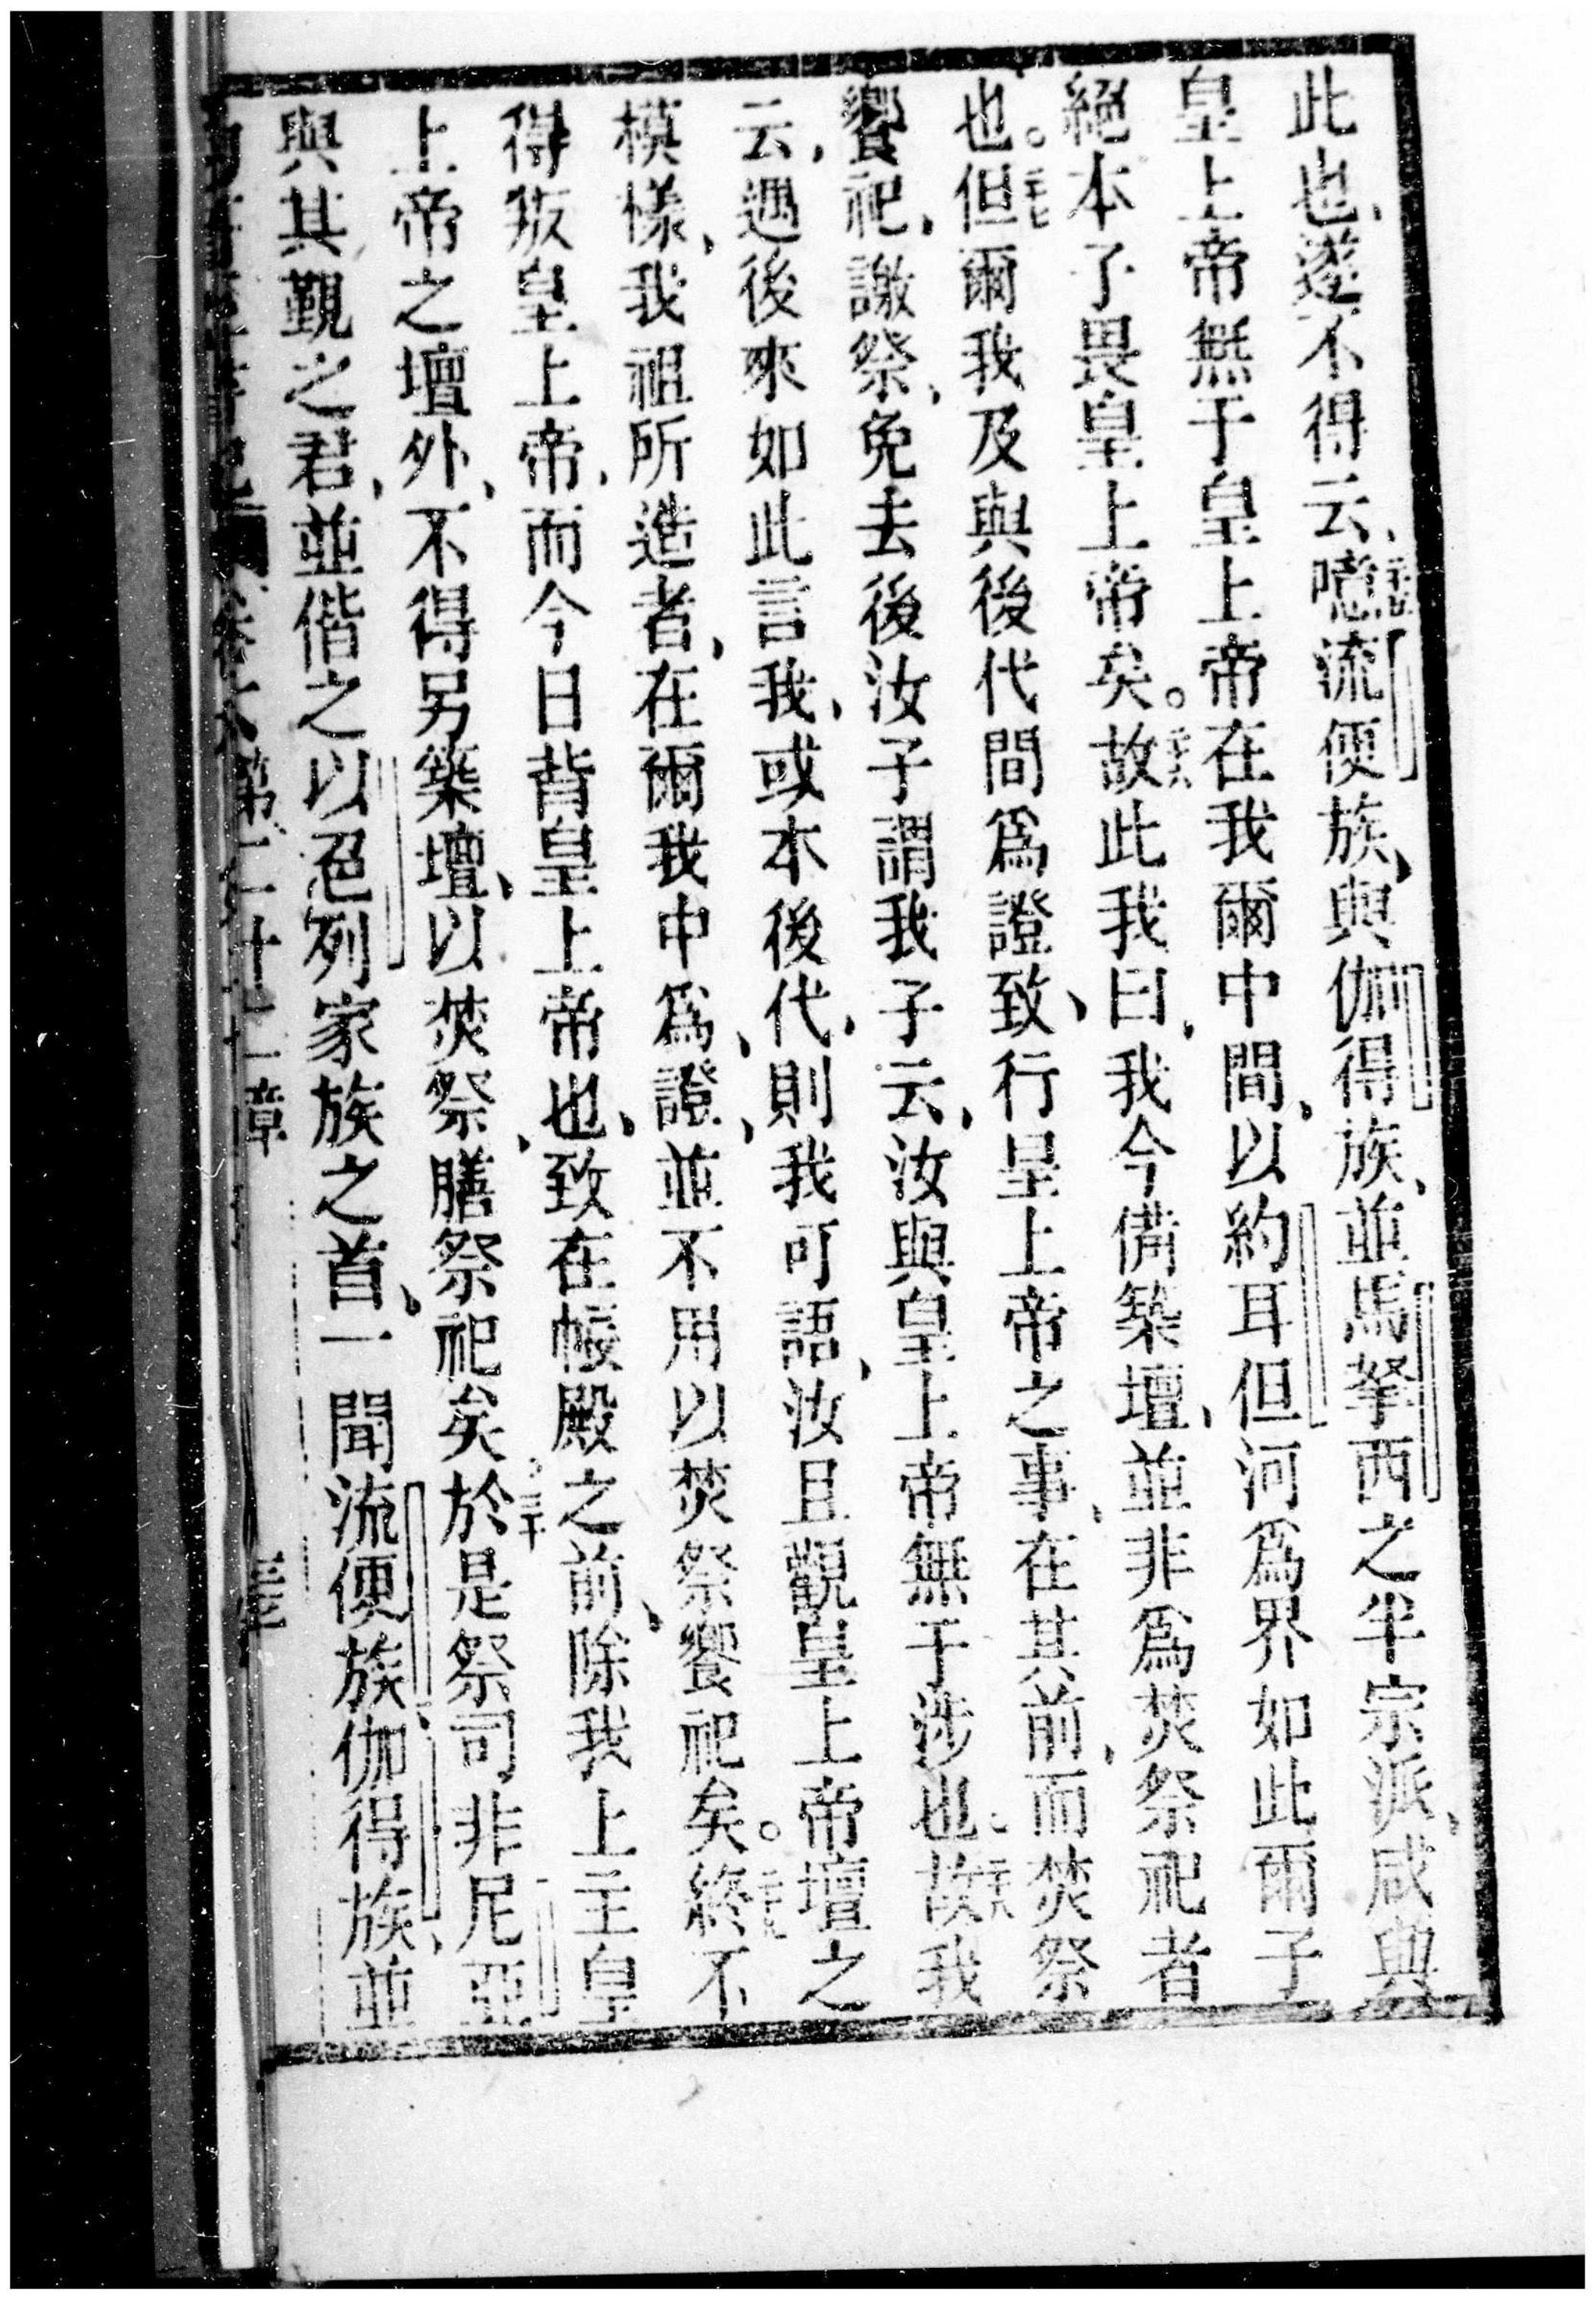 此也、遂不得云、二十五噫流便族、與伽得族、並馬拏西之半宗派、咸與
皇上帝無干皇上帝在我爾中間、以約耳但河為界如此爾子
絕本子畏皇上帝矣。二十六故此我曰、我今備築壇、並非為焚祭祀者
也。二十七但爾我及與後代間為證、致行皇上帝之事、在其前、而焚祭
饗祀、謝祭、免去後汝子謂我子云、汝與皇上帝無干涉也、二十八故我
云、遇後來如此言我、或本後代、則我可語、汝且觀皇上帝壇之
模樣、我祖所造者、在爾我中為、證、並不用以焚祭饗祀矣。二十九終不
得叛皇上帝、而今日背皇上帝也、致在帳殿之前、除我上主皇
上帝之壇外、不得另築壇、以焚祭、膳祭祀矣。三十於是祭司非尼亞
與其覲之君、並偕之以色列家族之首、一聞流便族、伽得族、並
第二十二章